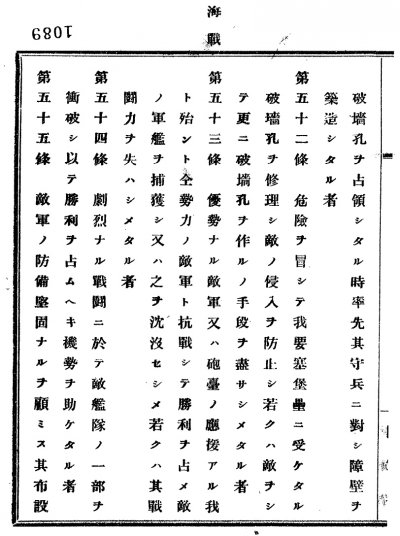 海戰
1089
破墻孔ヲ占領シタル時率先其守兵ニ對シ障壁ヲ
築造シタル者
第五十二條　危險ヲ冒シテ我要塞堡壘ニ受ケタル
破墻孔ヲ修理シ敵ノ侵入ヲ防止シ若クハ敵ヲシ
テ更ニ破墻孔ヲ作ルノ手段ヲ盡サシメタル者
第五十三條　優勢ナル敵軍又ハ砲臺ノ應援アル我
ト殆ント全勢力ノ敵軍ト抗戰シテ勝利ヲ占メ敵
ノ軍艦ヲ捕獲シ又ハ之ヲ沈沒セシメ若クハ其戰
鬪力ヲ失ハシメタル者
第五十四條　劇烈ナル戰鬪ニ於テ敵艦隊ノ一部ヲ
衝破シ以テ勝利ヲ占ムヘキ機勢ヲ助ケタル者
第五十五條　敵軍ノ防備堅固ナルヲ顧ミス其布設